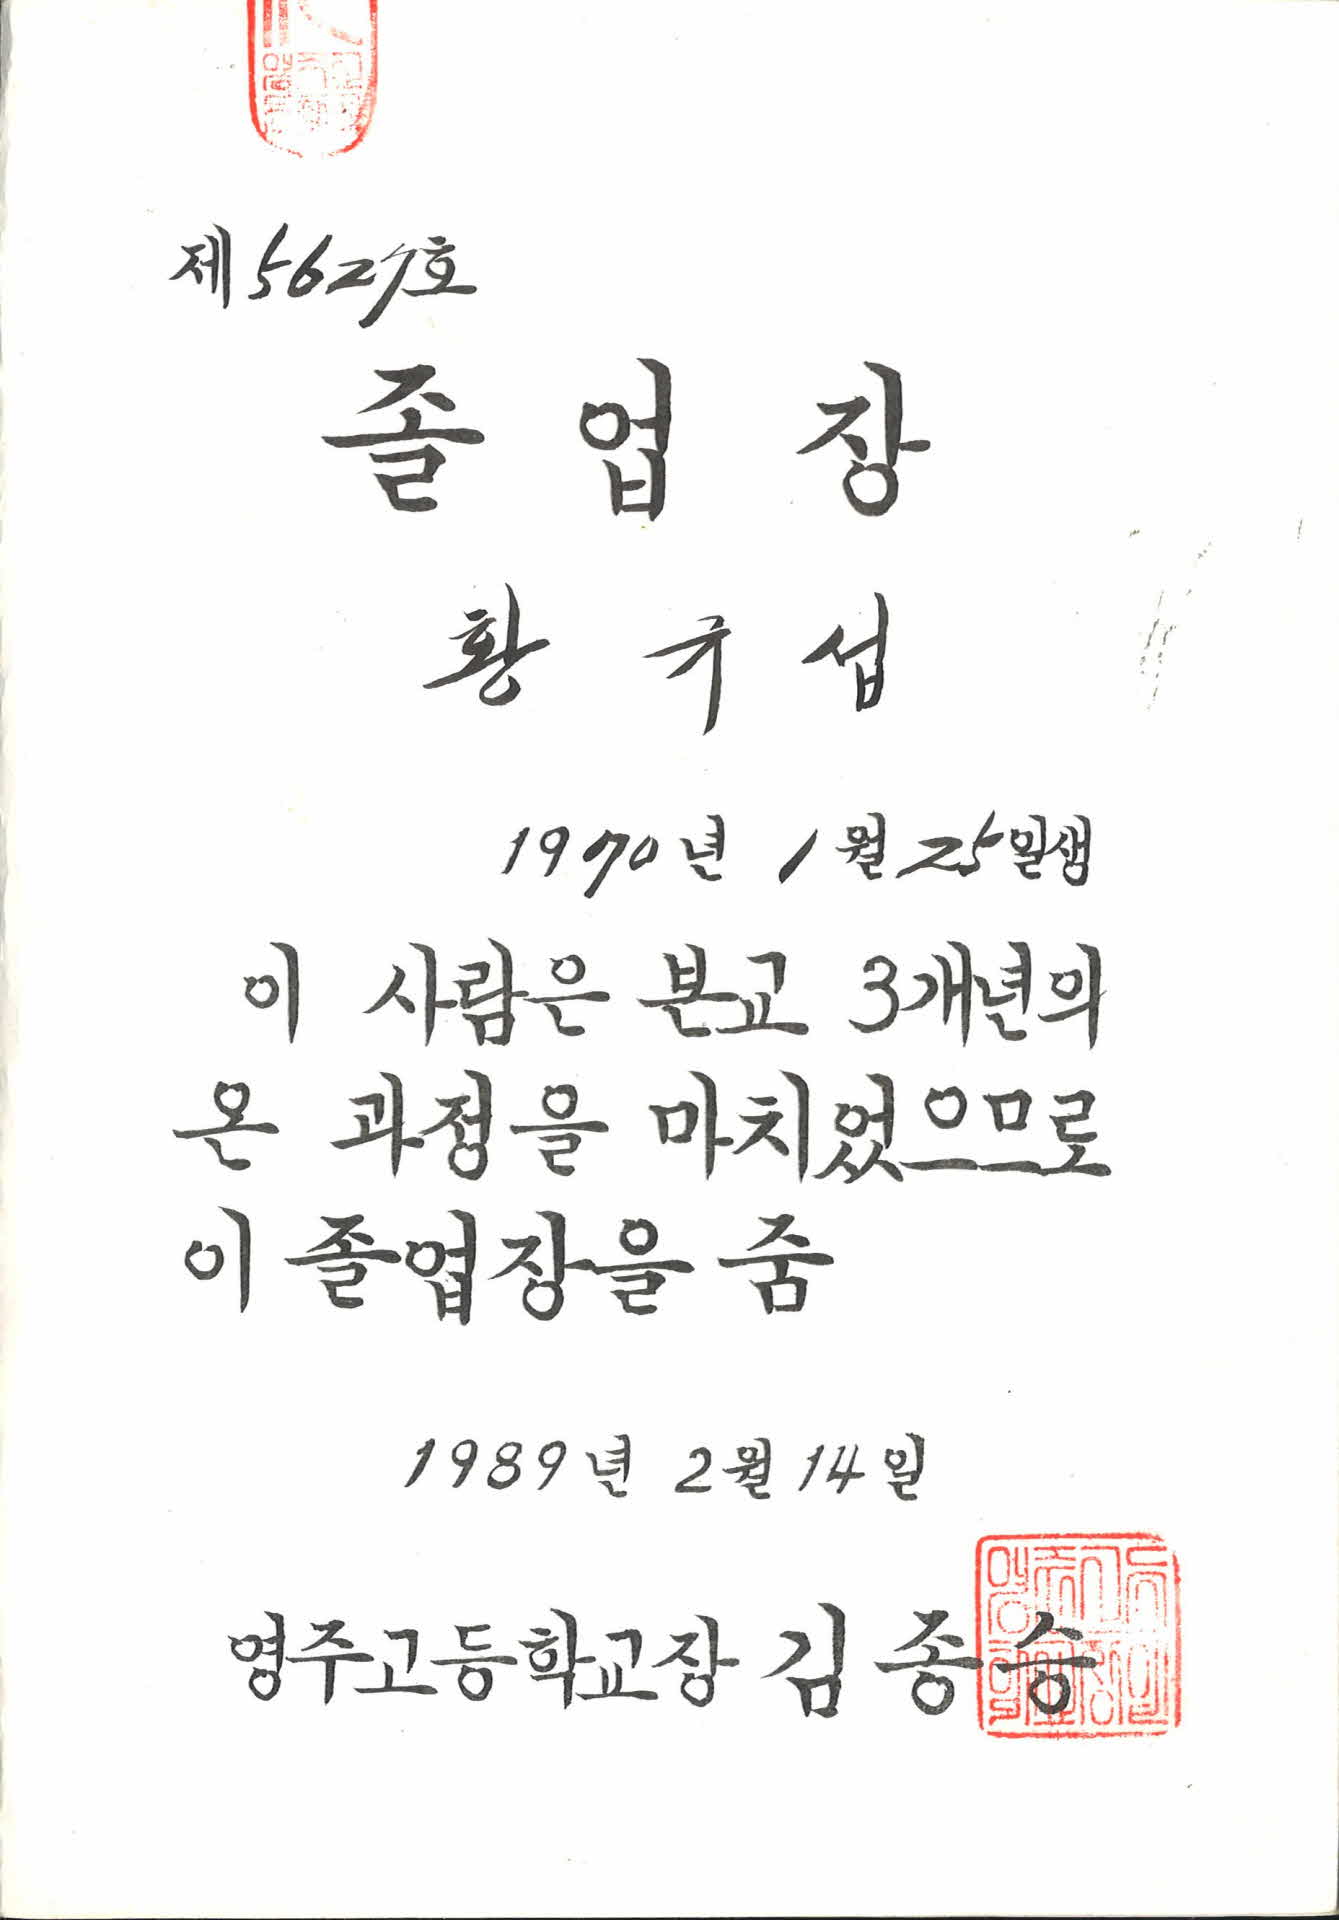 제5627호
졸업장
황규섭
1970년 1월 25일생
이 사람은 본교 3개년의
온 과정을 마치었으므로
이 졸업장을 줌
1989년 2월 14일
영주고등학교장 김종승